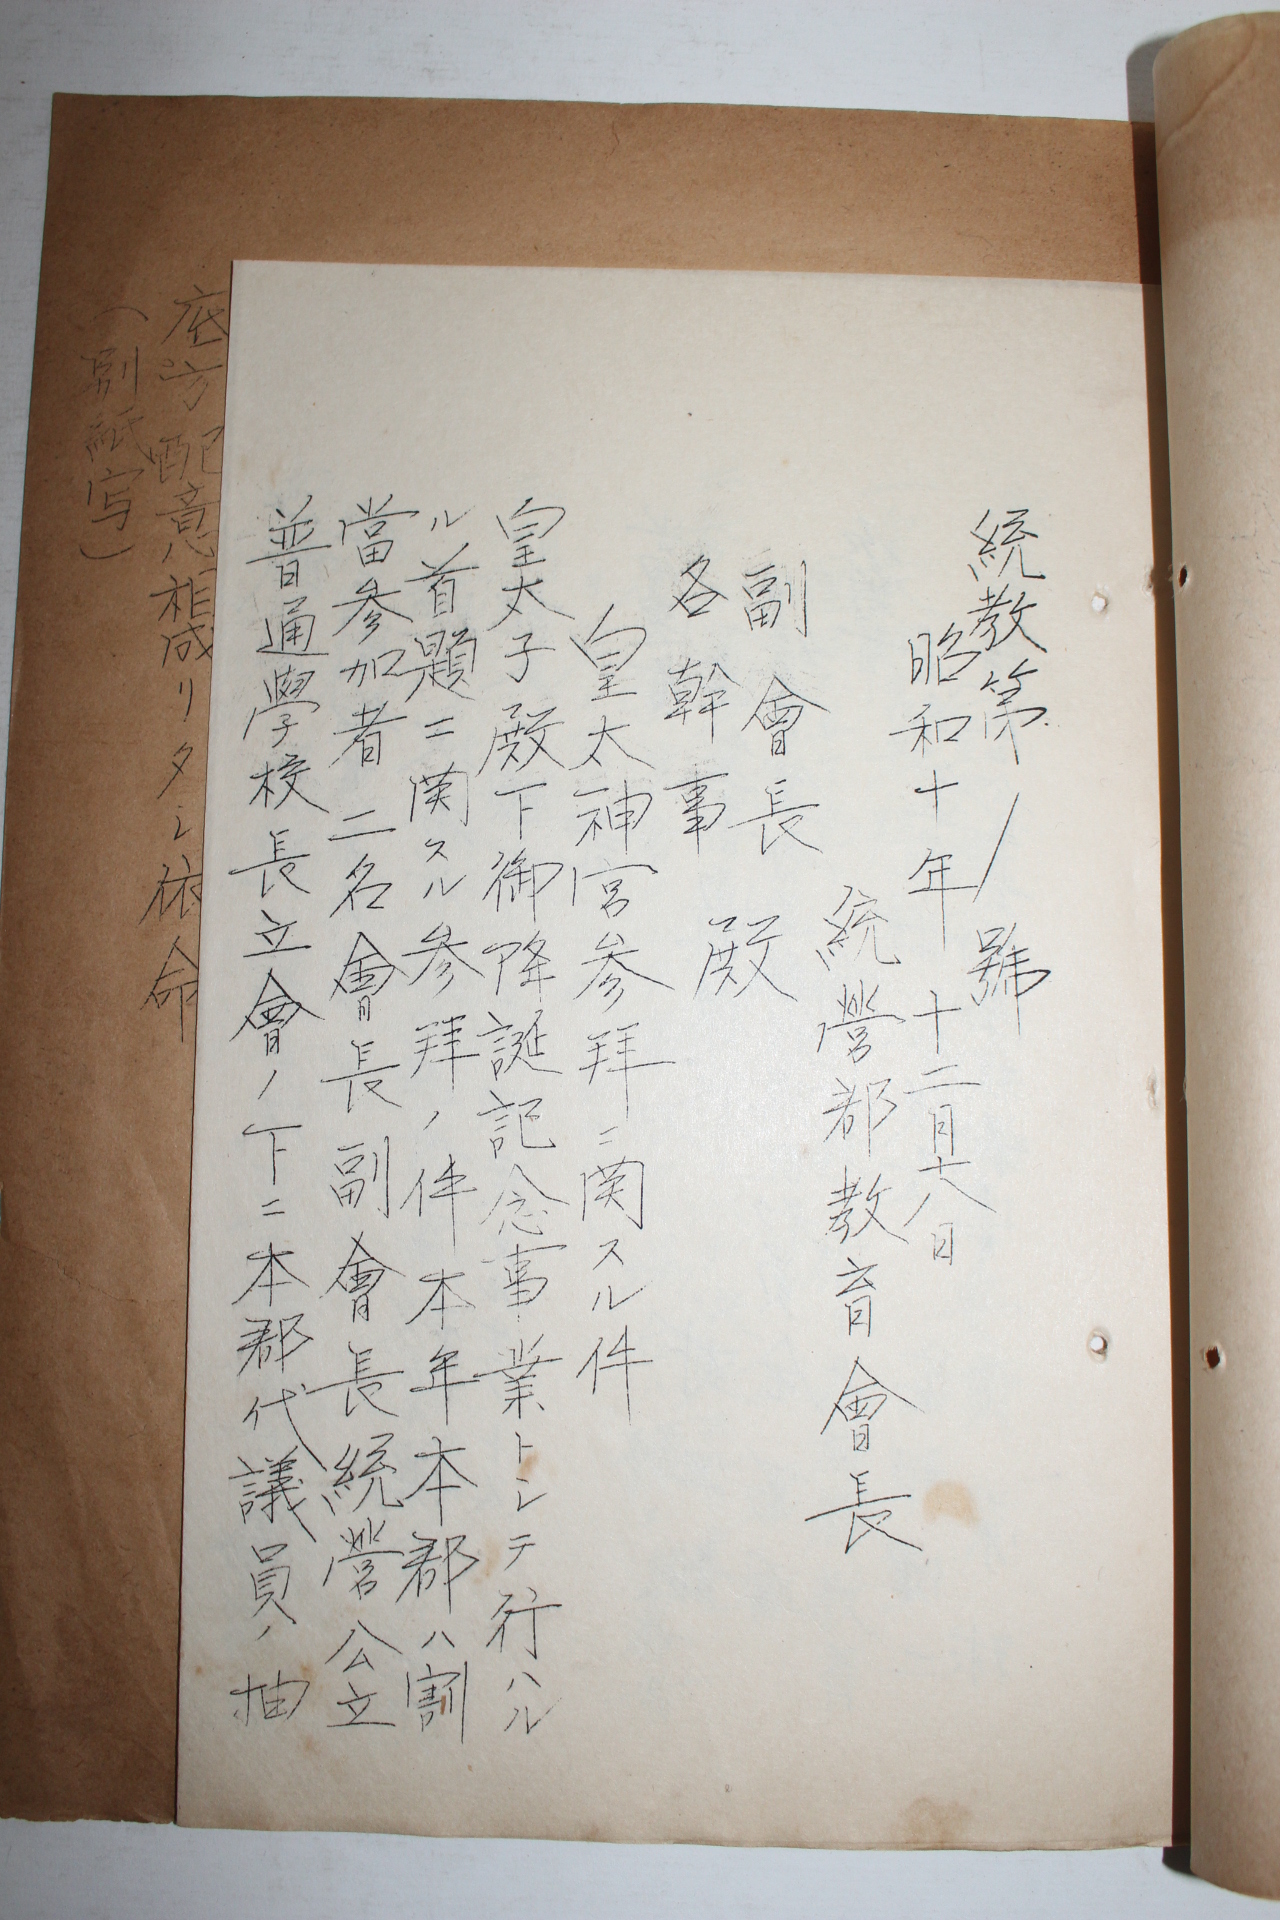 統教第1號
昭和十年十二月十八日
統營郡教育會長
副會長
各幹事 殿
皇太神宮參拜ニ関スル件
皇太子殿下御降誕記念事業トシテ行ハル
ル首題ニ関スル參拜ノ件本年本郡ハ割
當參加者二名會長副會長統營公立
普通學校長立會ノ下ニ本郡代議員ノ抽
方配意相成リタシ依命
（別紙写）